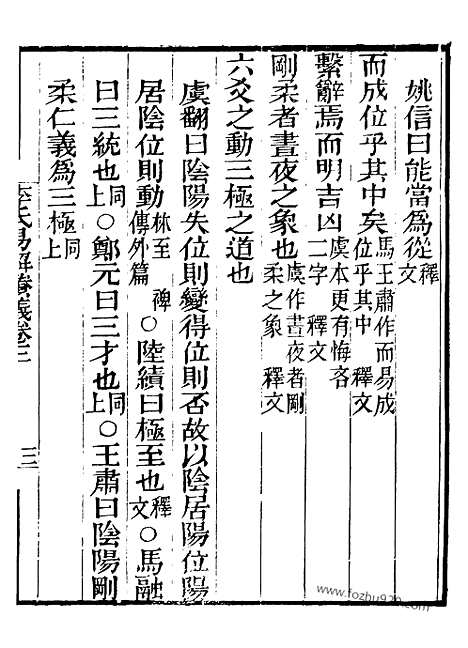 姚信曰能當爲從釋文
而成位乎其中矣馬王肅作而易成位乎其中 釋文
繫辭焉而明吉凶虞本更有悔吝二字 釋文
剛柔者晝夜之象也虞作晝夜者剛柔之象 釋文
六爻之動三極之道也
虞翻曰陰陽失位則變得位則否故以陰居陽位陽
居陰位則動林至裨傳外篇○陸績曰極至也釋文○馬融
曰三統也同上○鄭元曰三才也同上○王肅曰陰陽剛
柔仁義爲三極同上
李氏易解賸義卷三 三
www.fozhu920.com